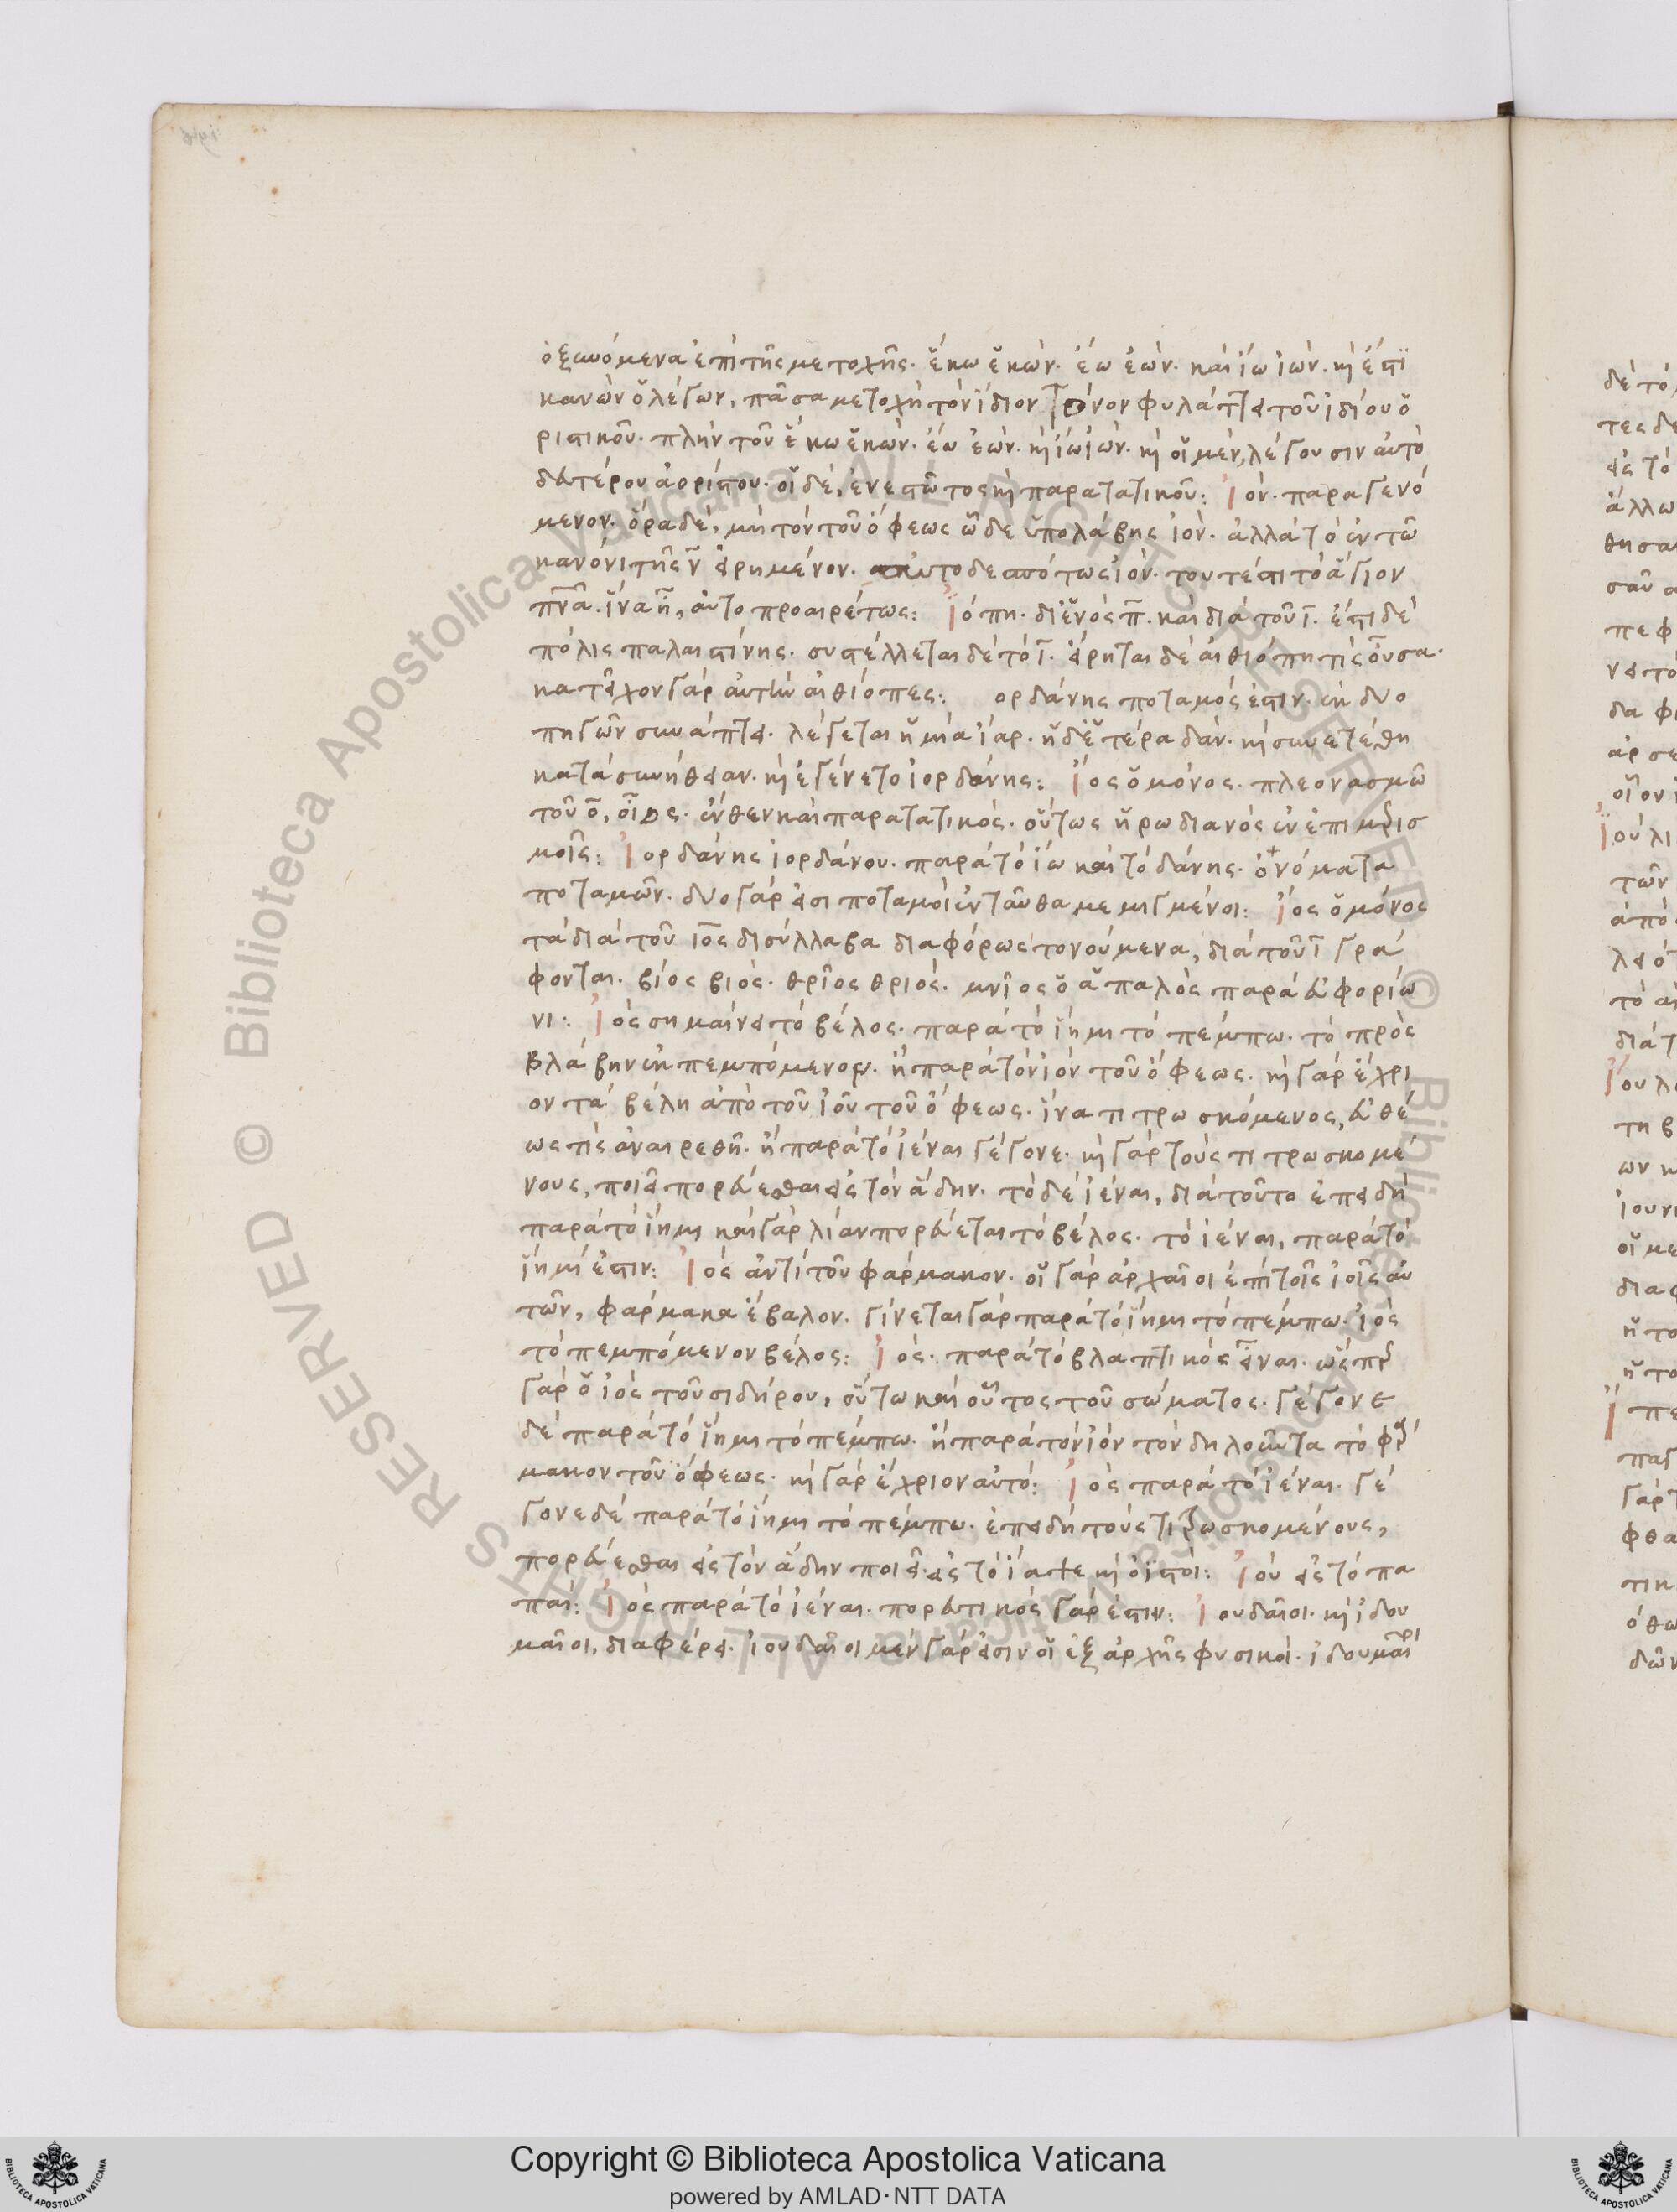 ὀξυνόμενα ἐπὶ τῆς μετοχῆς. ἕκω ἑκών. ἔω ἐών. καὶ ἴω ἰών. καὶ ἔστι
κανὼν ὁ λέγων, πᾶσα μετοχὴ τὸν ἴδιον τόνον φυλάττει τοῦ ἰδίου ὁ
ριστικοῦ. πλὴν τοῦ ἕκω ἑκών. ἔω ἐών. καὶ ἴω ἰών. καὶ οἱ μὲν, λέγουσιν αὐτὸ
δευτέρου ἀορίστου. οἱ δὲ, ἐνεστῶτος καὶ παρατατικοῦ: Ἰόν. παραγενό
μενον. ὅρα δὲ, μὴ τὸν τοῦ ὄφεως ὧδε ὑπολάβης ἰόν. ἀλλὰ τὸ ἐν τῶ
κανόνι τῆς ν̄ εἰρημένον. αυτοδεσπότως ἰόν. τουτέστι τὸ ἅγιον
πν̄α. ἵνα ἦ, αὐτοπροαιρέτως: Ἰόπη. δι ἑνὸς π̄. καὶ διὰ τοῦ ῑ. ἔστι δὲ
πόλις παλαιστίνης. συστέλλεται δὲ τὸ ῑ. εἴρηται δὲ αἰθιόπη τὶς οὖσα.
κατεῖχον γὰρ αὐτὴν αἰθίοπες: ορδάνης ποταμός ἐστιν. ἐκ δυο
πηγῶν συνάπτει. λέγεται ἡ μία ἰάρ. ἡ δὲ ἑτέρα δάν. καὶ συνετέθη
κατὰ συνήθειαν. καὶ ἐγένετο ἰορδάνης: Ἴος ὁ μόνος. πλεονασμῶ
τοῦ ο̄, οἶος. ἔνθεν καὶ παρατατικός. οὕτως ἡρωδιανὸς ἐν ἐπιμερισ
μοῖς: Ἰορδάνης ἰορδάνου. παρὰ τὸ ἴω καὶ τὸ δάνης. ὀνόματα
ποταμῶν. δυο γάρ εἰσι ποταμοὶ ἐνταῦθα μεμιγμένοι: Ἴος ὁ μόνος
τὰ διὰ τοῦ ῑος δισύλλαβα διαφόρως τονούμενα, διὰ τοῦ ῑ γρά
φονται. βίος βιός. θρῖος θριός. μνῖος ὁ ἁπαλὸς παρὰ εὐφορίω
νι: Ἰὸς σημαίνει τὸ βέλος. παρὰ τὸ ἵημι τὸ πέμπω. τὸ πρὸς
βλάβην ἐκπεμπόμενον. ἢ παρὰ τὸν ἰὸν τοῦ ὄφεως. καὶ γὰρ ἔχρι
ον τὰ βέλη ἀπὸ τοῦ ἰοῦ τοῦ ὄφεως. ἵνα τιτρωσκόμενος, εὐθέ
ως τὶς ἀναιρεθῆ. ἢ παρὰ τὸ ἰέναι γέγονε. καὶ γὰρ τοὺς τιτρωσκομέ
νους, ποιεῖ πορεύεσθαι εἰς τὸν ἅδην. τὸ δὲ ἰέναι, διὰ τοῦτο ἐπειδὴ
παρὰ τὸ ἵημι καὶ γὰρ λίαν πορεύεται τὸ βέλος. τὸ ἰέναι, παρὰ τὸ
ἵημί ἐστιν: Ἰὸς ἀντὶ τοῦ φάρμακον. οἱ γὰρ ἀρχαῖοι ἐπὶ τοῖς ἰοῖς αὐ
τῶν, φάρμακα ἔβαλον. γίνεται γὰρ παρὰ τὸ ἵημι τὸ πέμπω. ἰὸς
τὸ πεμπόμενον βέλος: Ἰός. παρὰ τὸ βλαπτικὸς εἶναι. ὥσπερ
γὰρ ὁ ἰὸς τοῦ σιδήρου, οὕτω καὶ οὗτος τοῦ σώματος. γέγονε
δὲ παρὰ τὸ ἵημι τὸ πέμπω. ἢ παρὰ τὸν ἰὸν τὸν δηλοῦντα τὸ φάρ
μακον τοῦ ὄφεως. καὶ γὰρ ἔχριον αὐτό: Ἰὸς παρὰ τὸ ἰέναι. γέ
γονε δὲ παρὰ τὸ ἵημι τὸ πέμπω. ἐπειδὴ τοὺς τιτρωσκομένους,
πορεύεσθαι εἰς τὸν ἅδην ποιεῖ. εἰς τὸ ἴατε καὶ ὀϊστοί: Ἰού εἰς τὸ πα
παί: Ἰὸς παρὰ τὸ ἰέναι. πορευτικὸς γάρ ἐστιν: Ἰουδαῖοι. καὶ ἰδου
μαῖοι, διαφέρει. ἰουδαῖοι μὲν γάρ εἰσιν οἱ ἐξ ἀρχῆς φυσικοί. ἰδουμαῖοι
© Biblioteca Apostolica Vaticana ALL RIGHTS RESERVED
Copyright © Biblioteca Apostolica Vaticana
powered by AMLAD·NTT DATA